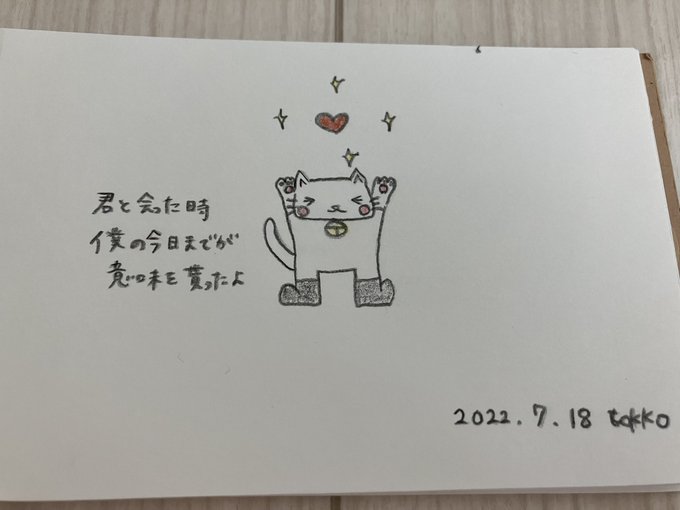 君と会った時
僕の今日までが
意味を貰ったよ
2022.7.18 takko